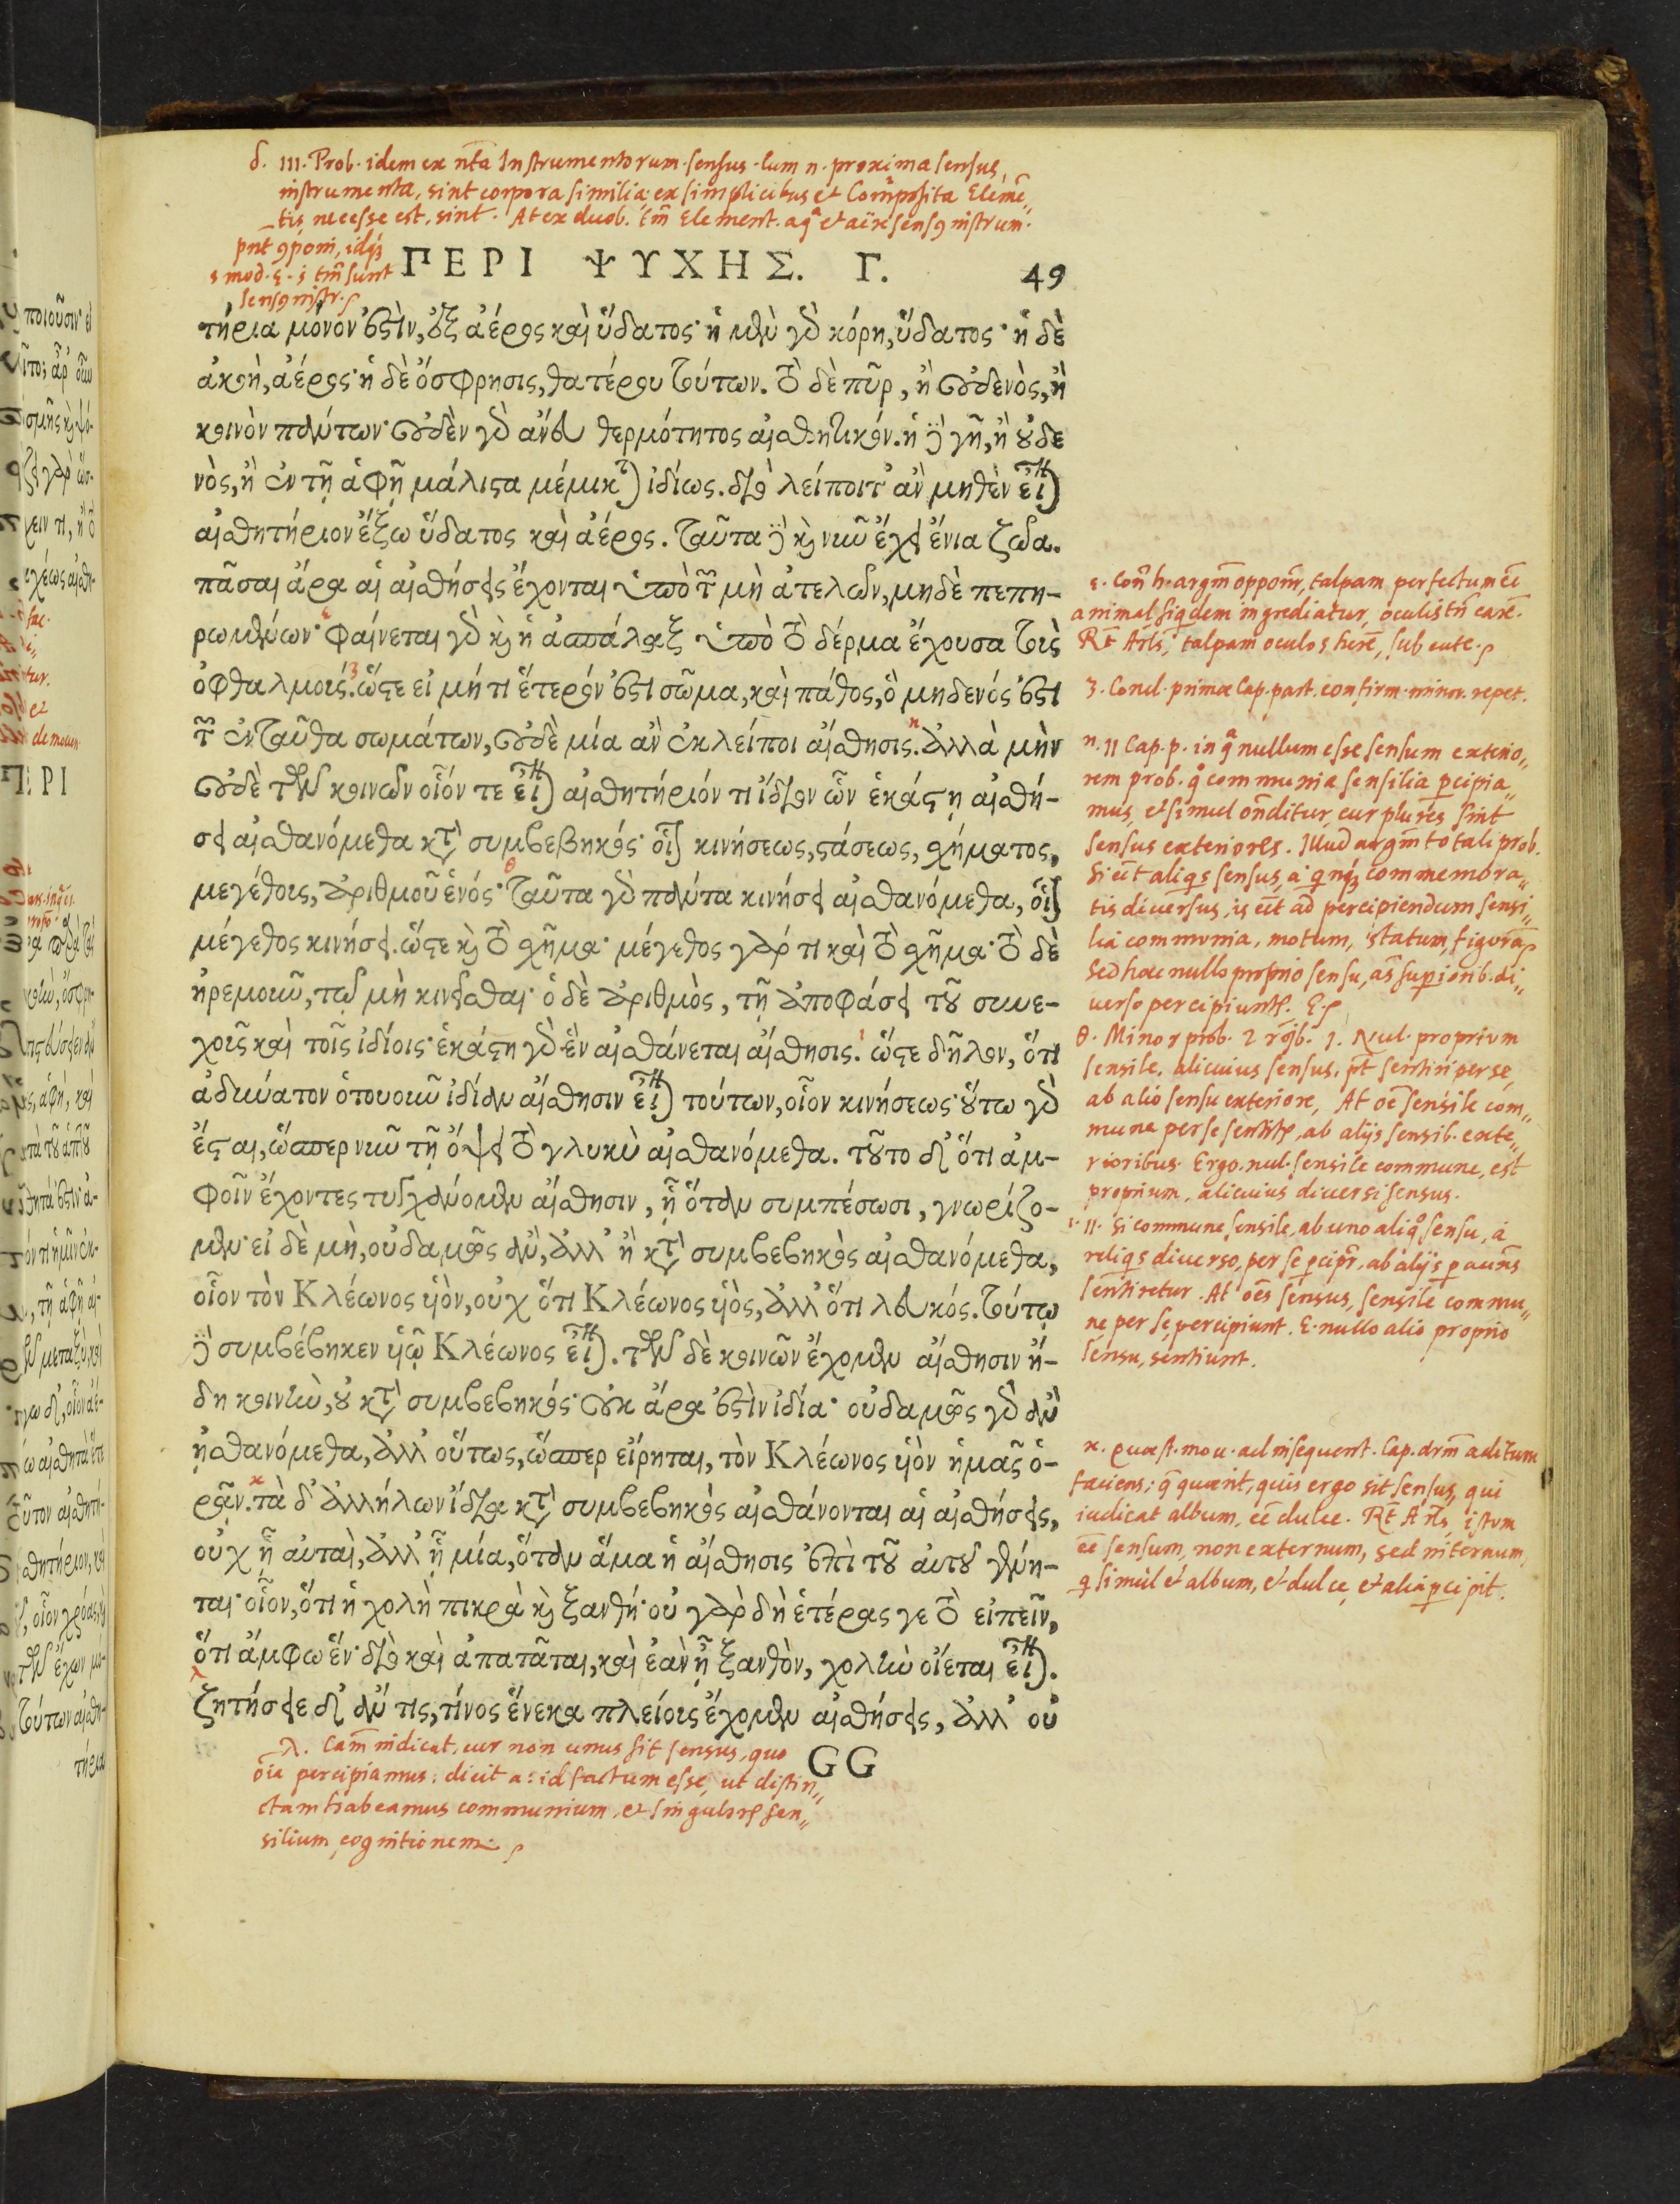 δ. III. Prob. idem ex nta Instrumentorum sensus. Cum n. proxima sensus,
instrumenta, sint corpora similia: ex simplicibus et composita Elemē„
tis necesse est, sint. At ex duob. tm̄ Element. aqᵃ et aëre sensꝯ instrum.
pn̄t ꝯponi, idqꝫ
mod. tm̄ sunt
sensꝯ instr.
ΠΕΡΙ ΨΥΧΗΣ. Γ. 49
τήρια μόνον ἐστὶν, ἐξ ἀέρος καὶ ὕδατος· ἡ μὲν γὸ κόρη, ὕδατος· ἡ δὲ
ἀκοὴ, ἀέρος· ἡ δὲ ὄσφρησις, θατέρου τούτων. τὸ δὲ πῦρ, ἢ οὐδενὸς, ἢ
κοινὸν πάντων· οὐδὲν γὸ ἄνευ θερμότητος αἰσθητικόν. ἡ ὃ γῆ, ἢ οὐδε
νὸς, ἢ ἐν τῇ ἁφῇ μάλιστα μέμικται ἰδίως. διὸ λείποιτ' ἂν μηθὲν εἶναι
αἰσθητήριον ἔξω ὕδατος καὶ ἀέρος. ταῦτα δὲ καὶ νῦν ἔχει ἔνια ζῶα.
πᾶσαι ἄρα αἱ αἰσθήσεις ἔχονται ὑπὸ τῶν μὴ ἀτελῶν, μηδὲ πεπη-
ρωμένων· φαίνεται γὸ καὶ ἡ ἀσπάλαξ ὑπὸ τὸ δέρμα ἔχουσα τοὺς
ὀφθαλμούς. ὥστε εἰ μή τι ἕτερόν ἐστι σῶμα, καὶ πάθος, ὃ μηδενός ἐστι
τῶν ἐνταῦθα σωμάτων, οὐδὲ μία ἂν ἐκλείποι αἴσθησις. ἀλλὰ μὴν
οὐδὲ τῶν κοινῶν οἷόν τε εἶναι αἰσθητήριόν τι ἴδιον ὧν ἑκάστη αἰσθή-
σει αἰσθανόμεθα κατὰ συμβεβηκός· οἷον κινήσεως, στάσεως, σχήματος,
μεγέθους, ἀριθμοῦ ἑνός· ταῦτα γὸ πάντα κινήσει αἰσθανόμεθα, οἷον
μέγεθος κινήσει. ὥστε καὶ τὸ σχῆμα· μέγεθος γάρ τι καὶ τὸ σχῆμα· τὸ δὲ
ἠρεμοῦν, τῷ μὴ κινεῖσθαι· ὁ δὲ ἀριθμὸς, τῇ ἀποφάσει τοῦ συνε-
χοῦς καὶ τοῖς ἰδίοις· ἑκάστη γὸ ἓν αἰσθάνεται αἴσθησις. ὥστε δῆλον, ὅτι
ἀδύνατον ὁτουοῦν ἰδίαν αἴσθησιν εἶναι τούτων, οἷον κινήσεως· οὕτω γὸ
ἔσται, ὥσπερ νῦν τῇ ὄψει τὸ γλυκὺ αἰσθανόμεθα. τοῦτο δ' ὅτι ἀμ-
φοῖν ἔχοντες τυγχάνομεν αἴσθησιν, ᾗ ὅταν συμπέσωσι, γνωρίζο-
μεν· εἰ δὲ μὴ, οὐδαμῶς ἂν, ἀλλ' ἢ κατὰ συμβεβηκὸς αἰσθανόμεθα,
οἷον τὸν Κλέωνος ὑιὸν, οὐχ ὅτι Κλέωνος ὑιὸς, ἀλλ' ὅτι λευκός. τούτῳ
δὲ συμβέβηκεν ὑιῷ Κλέωνος εἶναι. τῶν δὲ κοινῶν ἔχομεν αἴσθησιν ἤ-
δη κοινὴν, οὐ κατὰ συμβεβηκός· οὐκ ἄρα ἐστὶν ἰδία· οὐδαμῶς γὸ ἂν
ᾐσθανόμεθα, ἀλλ' οὕτως, ὥσπερ εἴρηται, τὸν Κλέωνος ὑιὸν ἡμᾶς ὁ-
ρᾶν. τὰ δ' ἀλλήλων ἴδια κατὰ συμβεβηκὸς αἰσθάνονται αἱ αἰσθήσεις,
οὐχ ᾗ αὐταὶ, ἀλλ' ᾗ μία, ὅταν ἅμα ἡ αἴσθησις ἐπὶ τοῦ αὐτοῦ γένη-
ται· οἷον, ὅτι ἡ χολὴ πικρὰ καὶ ξανθή· οὐ γὰρ δὴ ἑτέρας γε τὸ εἰπεῖν,
ὅτι ἄμφω ἕν· διὸ καὶ ἀπατᾶται, καὶ ἐὰν ᾖ ξανθὸν, χολὴν οἴεται εἶναι.
ζητήσειε δ' ἄν τις, τίνος ἕνεκα πλείους ἔχομεν αἰσθήσεις, ἀλλ' οὐ
GG
ε. Con̄ h. argm̄ opponr̄, talpam perfectum eē
animal, siqdem ingrediatur, oculis tn̄ carē.
Rt̄ Arls, talpam oculos herē, sub cute.
ζ. Concl. primæ Cap. part. confirm. minor. repet.
η. II Cap. p. in qᵃ nullum esse sensum exterio„
rem prob. qͦ communia sensilia pcipia„
mus, et simul on̄ditur, cur plures sint
sensus exteriores. Illud argm̄to tali prob.
Si eēt aliqs sensus, a qnqꝫ commemora„
tis diuersus, is eēt ad percipiendum sensi„
lia communia, motum, statum, figurā
Sed hæc nullo proprio sensu, as̄ supiorib. di„
uerso percipiuntr. E.
θ. Minor prob. 2 rōb. 1. Nul. proprium
sensile, alicuius sensus, pt̄ sentiri per se,
ab alio sensu exteriore, At oē sensile com„
mune per se sentitr, ab alijs sensib. exte„
rioribus. Ergo. nul. sensile commune, est
proprium, alicuius diuersi sensus.
ι. II. Si commune sensile, ab uno aliqͦ sensu, a
reliqs diuerso, per se pcipr̄, ab alijs p accn̄s
sentiretur. At oēs sensus, sensile commu„
ne per se percipiunt. E. nullo alio proprio
sensu, sentiunt.
κ. Quæst. mou. ad insequent. Cap. drm̄ aditum
faciens; q̄ quærit, quis ergo sit sensus, qui
iudicat album, eē dulce. Rt̄ Arls, istum
eē sensum, non externum, sed internum,
q simul et album, et dulce, et alia pcipit.
λ. Cam̄ indicat, cur non unus sit sensus, quo
oīa percipiamus: dicit a: id factum esse, ut distin„
ctam habeamus communium, et singulor̄ sen„
silium cognitionem.